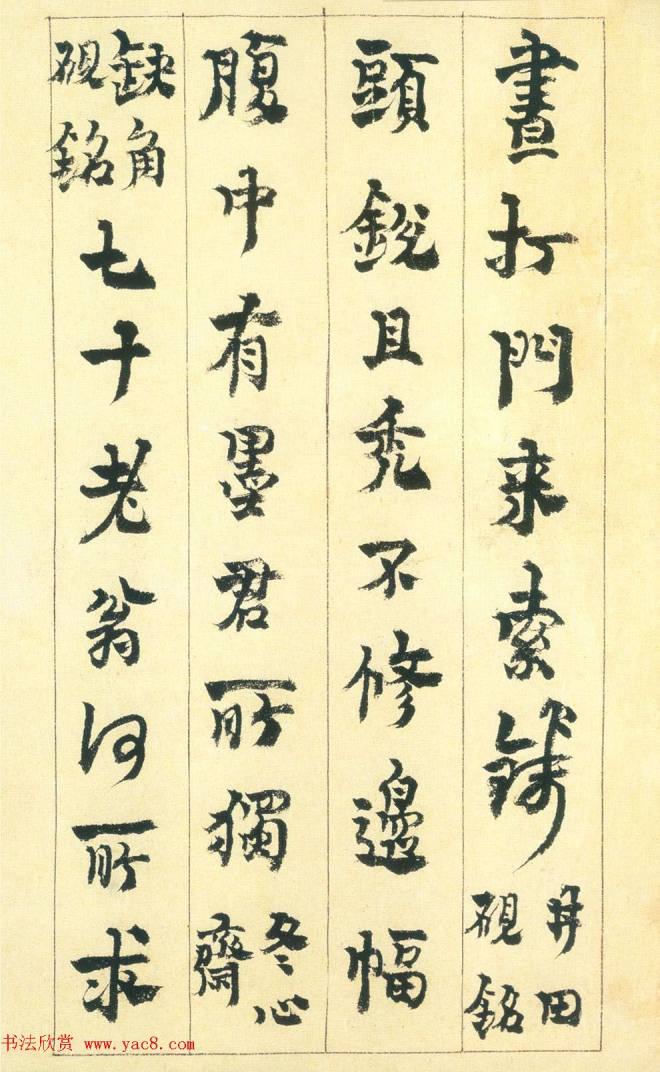 晝打門來索錢井田硯銘
頭銳且禿不修邊幅
腹中有墨君所獨冬心齋
缺角硯銘七十老翁何所求
书法欣赏 www.yac8.com